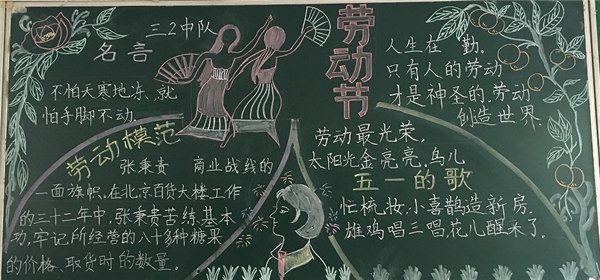 三2中队
名言
不怕天寒地冻、就
怕手脚不动.
劳动模范
张秉贵 商业战线的
一面旗帜,在北京百货大楼工作
的三十二年中,张秉贵苦练基本
功,牢记所经营的八十多种糖果
的价格、取货时的数量。
劳动节
人生在 勤.
只有人的劳动
才是神圣的,劳动
创造世界
劳动最光荣,
太阳光金亮亮,鸟儿
五一的歌
忙梳妆,小喜鹊造新房.
雄鸡唱三唱,花儿醒来了.